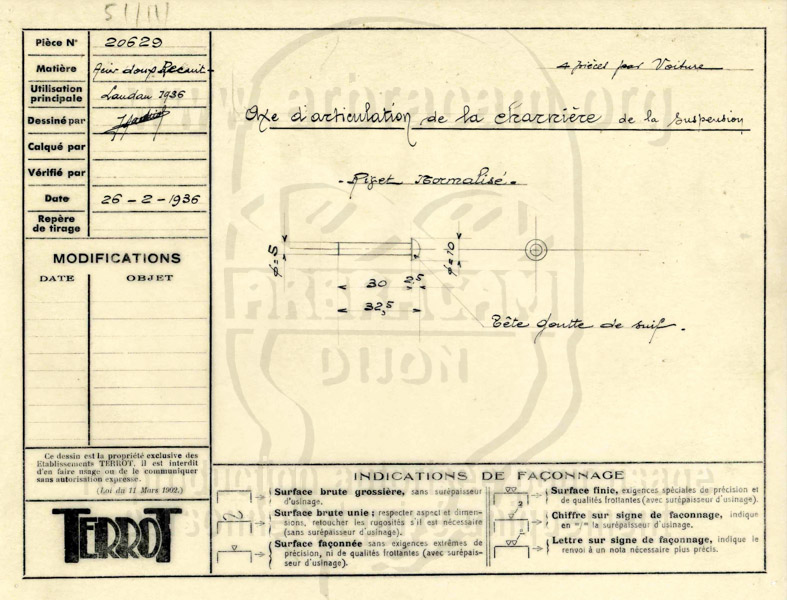 51/111
Pièce N° 20629
Matière Acier doux Recuit
Utilisation principale Landau 1936
Dessiné par
Calqué par
Vérifié par
Date 26-2-1936
Repère de tirage
MODIFICATIONS
DATE OBJET
Ce dessin est la propriété exclusive des
Etablissements TERROT. Il est interdit
d'en faire usage ou de le communiquer
sans autorisation expresse.
(Loi du 11 Mars 1902.)
TERROT
4 pièces par Voiture
Axe d'articulation de la charnière de la suspension
- Rivet Normalisé -
φ=5
φ=10
30
2,5
32,5
Tête goutte de suif.
ARBRACAM
DIJON
INDICATIONS DE FAÇONNAGE
Surface brute grossière, sans surépaisseur
d'usinage.
Surface brute unie ; respecter aspect et dimen-
sions, retoucher les rugosités s'il est nécessaire
(sans surépaisseur d'usinage).
Surface façonnée sans exigences extrêmes de
précision, ni de qualités frottantes (avec surépais-
seur d'usinage).
Surface finie, exigences spéciales de précision et
de qualités frottantes (avec surépaisseur d'usinage).
2
Chiffre sur signe de façonnage, indique
en "/" la surépaisseur d'usinage.
Lettre sur signe de façonnage, indique le
renvoi à un nota nécessaire plus précis.